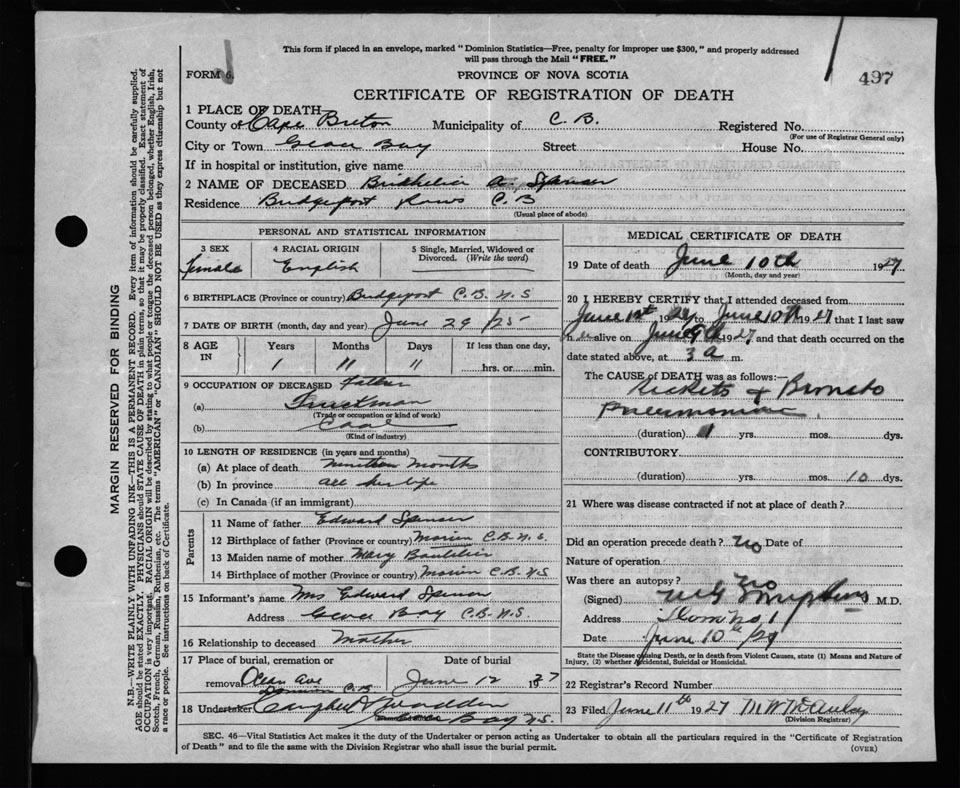 This form if placed in an envelope, marked "Dominion Statistics—Free, penalty for improper use $300," and properly addressed
will pass through the Mail "FREE."
FORM 6.
497
PROVINCE OF NOVA SCOTIA
CERTIFICATE OF REGISTRATION OF DEATH
1 PLACE OF DEATH
County of Cape Breton Municipality of C. B. Registered No.
(For use of Registrar General only)
City or Town Glace Bay Street House No.
If in hospital or institution, give name
2 NAME OF DECEASED Spencer
Residence Bridgeport Rows C. B
(Usual place of abode)
PERSONAL AND STATISTICAL INFORMATION
3 SEX
female
4 RACIAL ORIGIN
English
5 Single, Married, Widowed or
Divorced. (Write the word)
6 BIRTHPLACE (Province or country) Bridgeport C.B. N.S
7 DATE OF BIRTH (month, day and year) June 29/25
8 AGE IN
Years Months Days If less than one day,
1 11 11 hrs. or min.
9 OCCUPATION OF DECEASED Father
(a)
(Trade or occupation or kind of work)
(b) Coal
(Kind of industry)
10 LENGTH OF RESIDENCE (in years and months)
(a) At place of death nineteen months
(b) In province all her life
(c) In Canada (if an immigrant)
Parents
11 Name of father Edward Spencer
12 Birthplace of father (Province or country) Morien C.B. N.S.
13 Maiden name of mother Mary
14 Birthplace of mother (Province or country) Morien C.B. N.S
15 Informant's name Mrs Edward Spencer
Address Glace Bay C.B. N.S.
16 Relationship to deceased Mother
17 Place of burial, cremation or Date of burial
removal Ocean Ave June 12 1927
Dominion C.B
18 Undertaker
Glace Bay N.S.
MEDICAL CERTIFICATE OF DEATH
19 Date of death June 10th 1927
(Month, day and year)
20 I HEREBY CERTIFY that I attended deceased from
June 1st 1927 to June 10th 1927 that I last saw
h er alive on June 9th 1927 and that death occurred on the
date stated above, at 3 a m.
The CAUSE OF DEATH was as follows:—
Rickets & Broncho
Pneumonia
(duration) 1 yrs. mos. dys.
CONTRIBUTORY
(duration) yrs. mos. 10 dys.
21 Where was disease contracted if not at place of death?
Did an operation precede death? no Date of
Nature of operation
Was there an autopsy? no
(Signed) M.D.
Address Dom No 1
Date June 10th/27
State the Disease causing Death, or in death from Violent Causes, state (1) Means and Nature of
Injury, (2) whether Accidental, Suicidal or Homicidal.
22 Registrar's Record Number
23 Filed June 11th 1927
(Division Registrar)
SEC. 46—Vital Statistics Act makes it the duty of the Undertaker or person acting as Undertaker to obtain all the particulars required in the "Certificate of Registration
of Death" and to file the same with the Division Registrar who shall issue the burial permit.
(OVER)
MARGIN RESERVED FOR BINDING
N.B.—WRITE PLAINLY WITH UNFADING INK—THIS IS A PERMANENT RECORD. Every item of information should be carefully supplied.
AGE should be stated EXACTLY. PHYSICIANS should STATE CAUSE OF DEATH in plain terms, so that it may be properly classified. Exact statement of
OCCUPATION is very important. RACIAL ORIGIN will be described by stating to what people or tongue the deceased person belonged, whether English, Irish,
Scotch, French, German, Russian, Ruthenian, etc. The terms "AMERICAN" or "CANADIAN" SHOULD NOT BE USED as they express citizenship but not
a race or people. See instructions on back of Certificate.